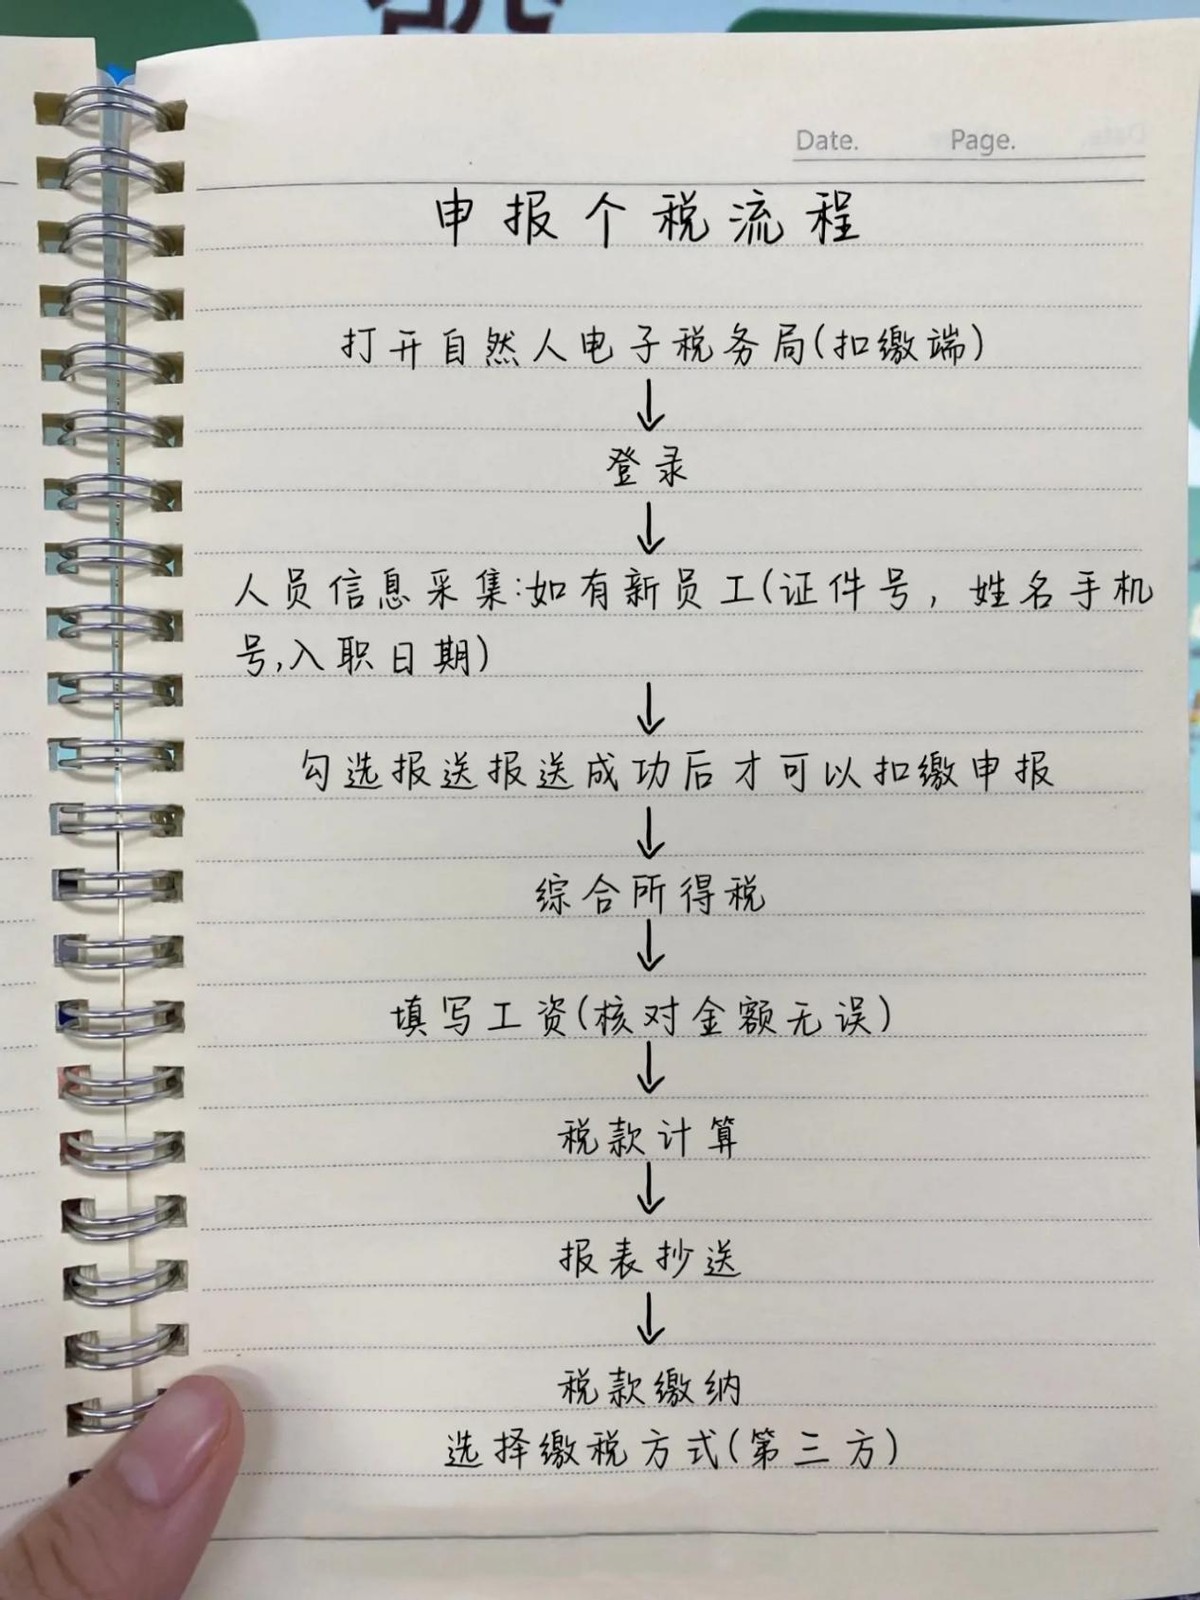 Date. Page.
申报个税流程
打开自然人电子税务局(扣缴端)
↓
登录
↓
人员信息采集:如有新员工(证件号，姓名手机
号,入职日期)
↓
勾选报送报送成功后才可以扣缴申报
↓
综合所得税
↓
填写工资(核对金额无误)
↓
税款计算
↓
报表抄送
↓
税款缴纳
选择缴税方式(第三方)